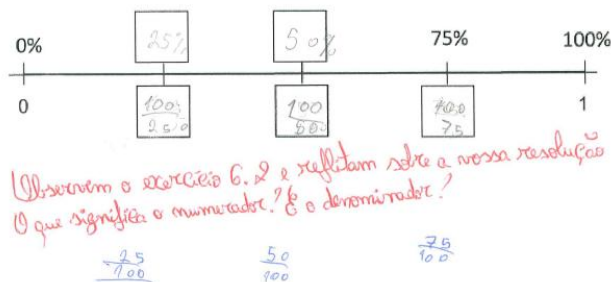 0% 25% 50% 75% 100%
0 100/25 100/50 100/75 1
Observem o exercício 6.2 e reflitam sobre a vossa resolução
O que significa o numerador? E o denominador?
25/100 50/100 75/100